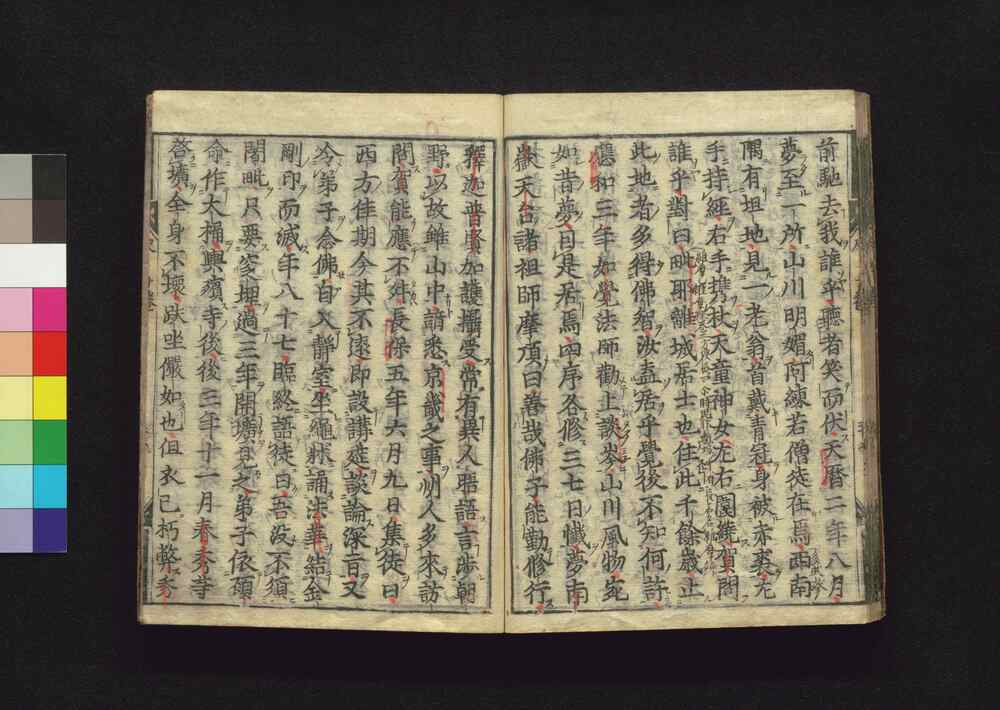 前馳去我誰乎聽者笑而伏天曆二年八月
夢至一所山川明媚間練若僧徒在焉西南
隅有坦地見一老翁首戴青冠身被赤裘左
手持經右手携杖天童神女左右圍繞賀問
誰乎對曰毗耶離城居士也住此千餘歲止
此地者多得佛智汝盍居乎覺後不知何許
應和三年如覺法師勸上談岑山川風物宛
如昔夢因是居焉四序各修三七日懺夢南
嶽天台諸祖師摩頂曰善哉佛子能勤修行
釋迦普賢加護攝受常有異人晤語言涉朝
野以故雖山中諳悉京畿之事州人多來訪
問賀能應不外長保五年六月九日集徒曰
西方佳期今其不遠即設講筵談論深旨又
令弟子念佛自入靜室坐繩牀誦法華結金
剛印而滅年八十七臨終語徒曰吾沒不須
闍毗只要窆埋過三年開壙見之弟子依碩
命作大桶輿殯寺後後三年十一月春秀等
啓壙全身不壞趺坐儼如也但衣已朽弊秀